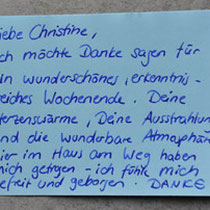 iebe Christine,
ch möchte Danke sagen für
in wunderschönes, erkenntnis-
reiches Wochenende. Deine
erzenswärme, Deine Ausstrahlun
nd die wunderbare Atmosphär
ier im Haus am Weg haben
mich getragen - ich fühle mich
efreit und geborgen. DANKE